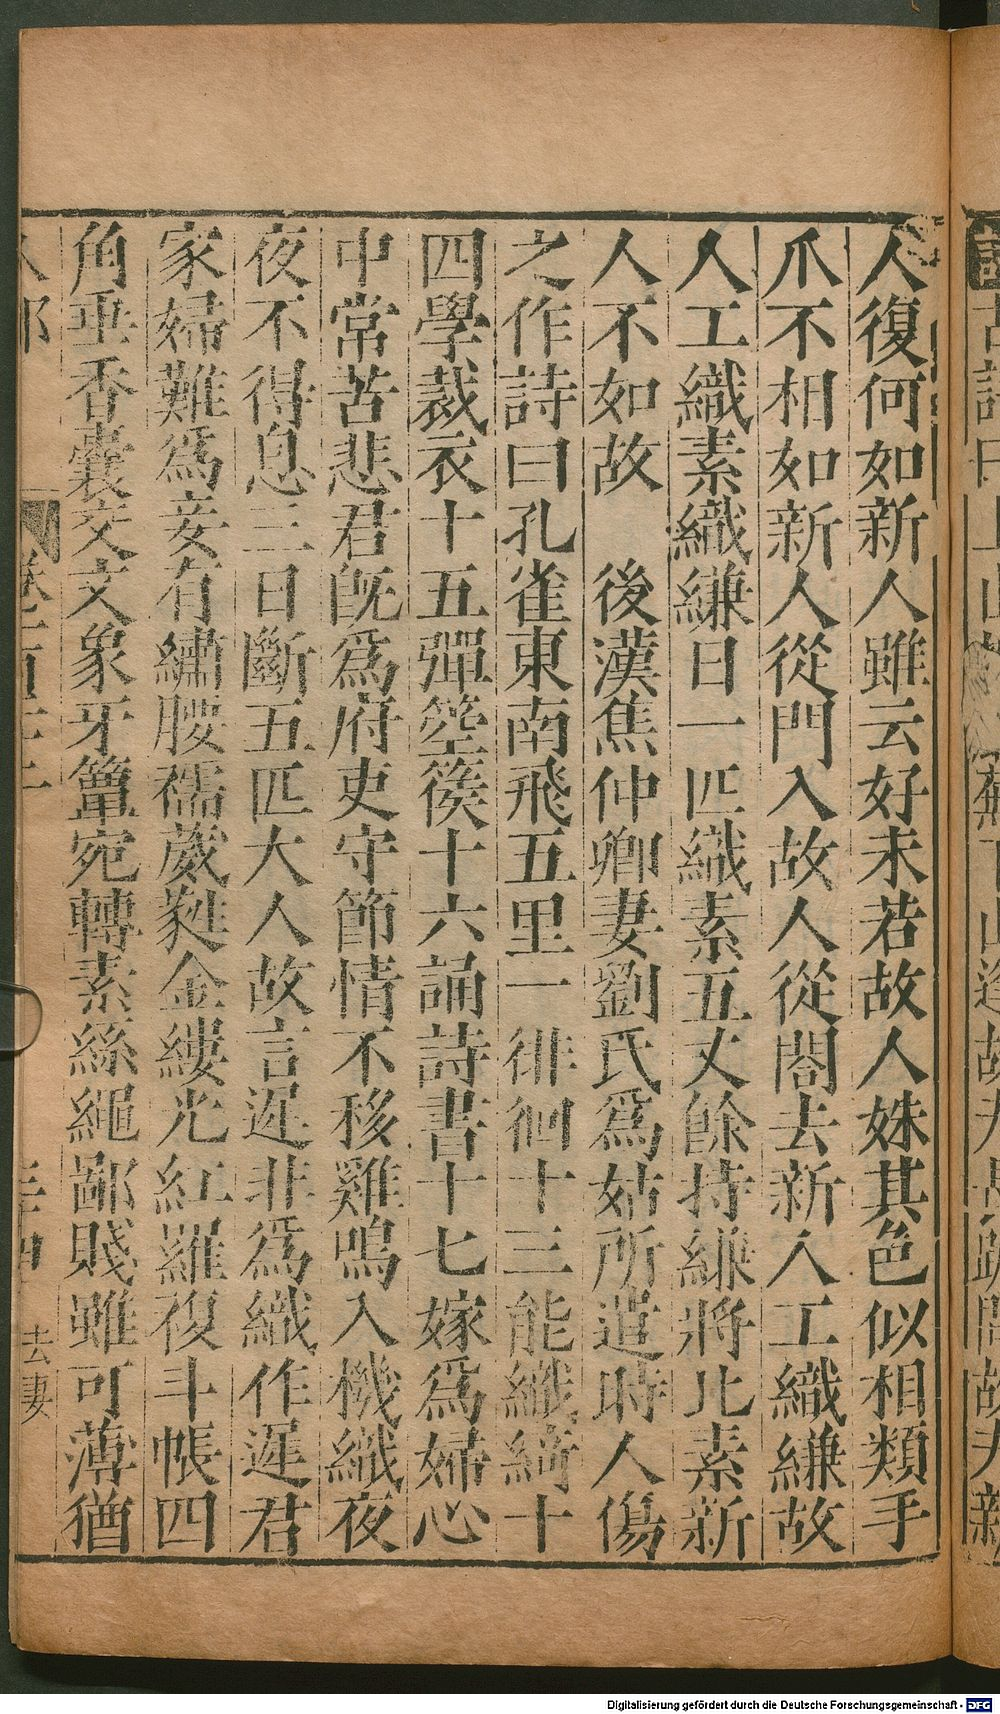 人復何如新人雖云好未若故人姝其色似相類手
爪不相如新人從門入故人從閤去新人工織縑故
人工織素織縑日一匹織素五丈餘持縑將比素新
人不如故　後漢焦仲卿妻劉氏爲姑所遣時人傷
之作詩曰孔雀東南飛五里一徘徊十三能織綺十
四學裁衣十五彈箜篌十六誦詩書十七嫁爲婦心
中常苦悲君旣爲府吏守節情不移雞鳴入機織夜
夜不得息三日斷五匹大人故言遲非爲織作遲君
家婦難爲妾有繡腰襦葳蕤金縷光紅羅複斗帳四
角垂香囊交文象牙簟宛轉素絲繩鄙賤雖可薄猶
人部
去妻
Digitalisierung gefördert durch die Deutsche Forschungsgemeinschaft - DFG